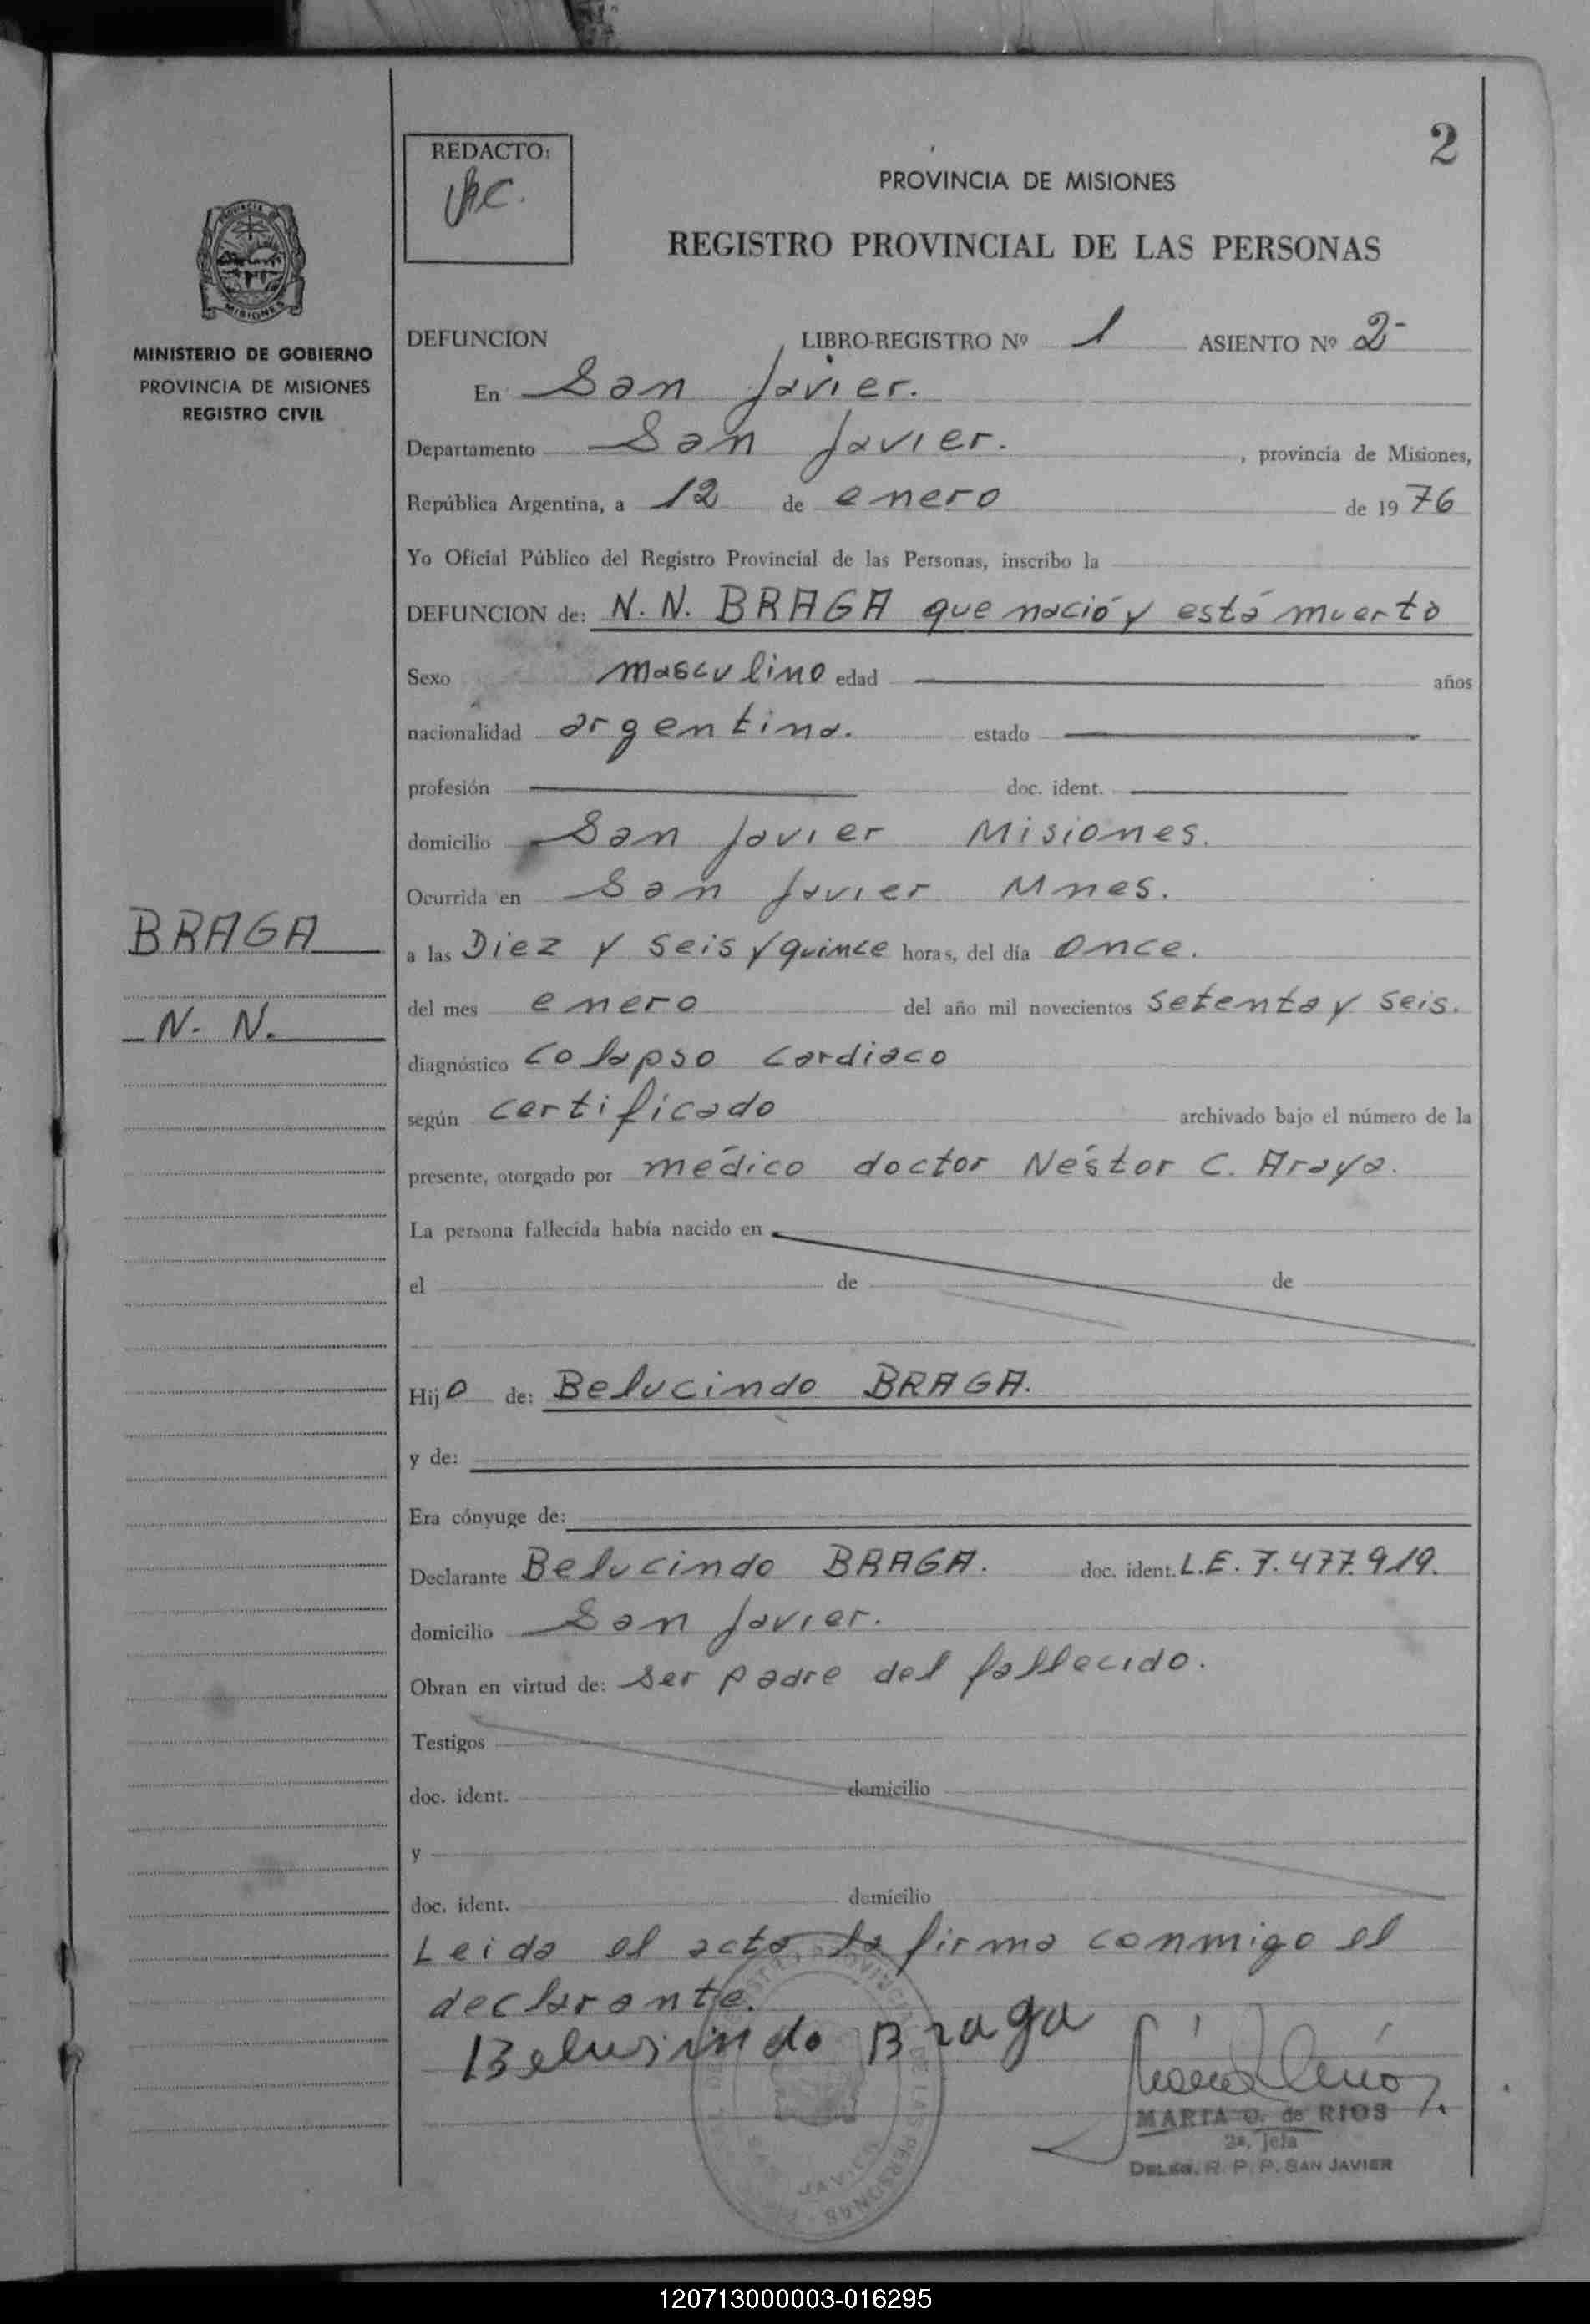 2
REDACTO:
PROVINCIA DE MISIONES
REGISTRO PROVINCIAL DE LAS PERSONAS
MISIONES
MINISTERIO DE GOBIERNO
PROVINCIA DE MISIONES
REGISTRO CIVIL
DEFUNCION LIBRO-REGISTRO Nº 1 ASIENTO Nº 2-
En San Javier.
Departamento San Javier. , provincia de Misiones,
República Argentina, a 12 de enero de 1976
Yo Oficial Público del Registro Provincial de las Personas, inscribo la
DEFUNCION de: N. N. BRAGA que nació y está muerto
Sexo masculino edad años
nacionalidad argentina. estado
profesión doc. ident.
domicilio San Javier Misiones.
Ocurrida en San Javier Mnes.
BRAGA
a las Diez y seis y quince horas, del día once.
N. N.
del mes enero del año mil novecientos setenta y seis.
diagnóstico colapso cardiaco
según certificado archivado bajo el número de la
presente, otorgado por médico doctor Néstor C. Araya.
La persona fallecida había nacido en
el de de
Hijo de: Belucindo BRAGA.
y de:
Era cónyuge de:
Declarante Belucindo BRAGA. doc. ident. L.E. 7.477.919.
domicilio San Javier.
Obran en virtud de: ser padre del fallecido.
Testigos
doc. ident. domicilio
y
doc. ident. domicilio
Leida el acta la firma conmigo el
declarante.
Belusindo Braga
MARIA O. de RIOS
2ª. Jefa
DELEG. R. P. P. SAN JAVIER
120713000003-016295